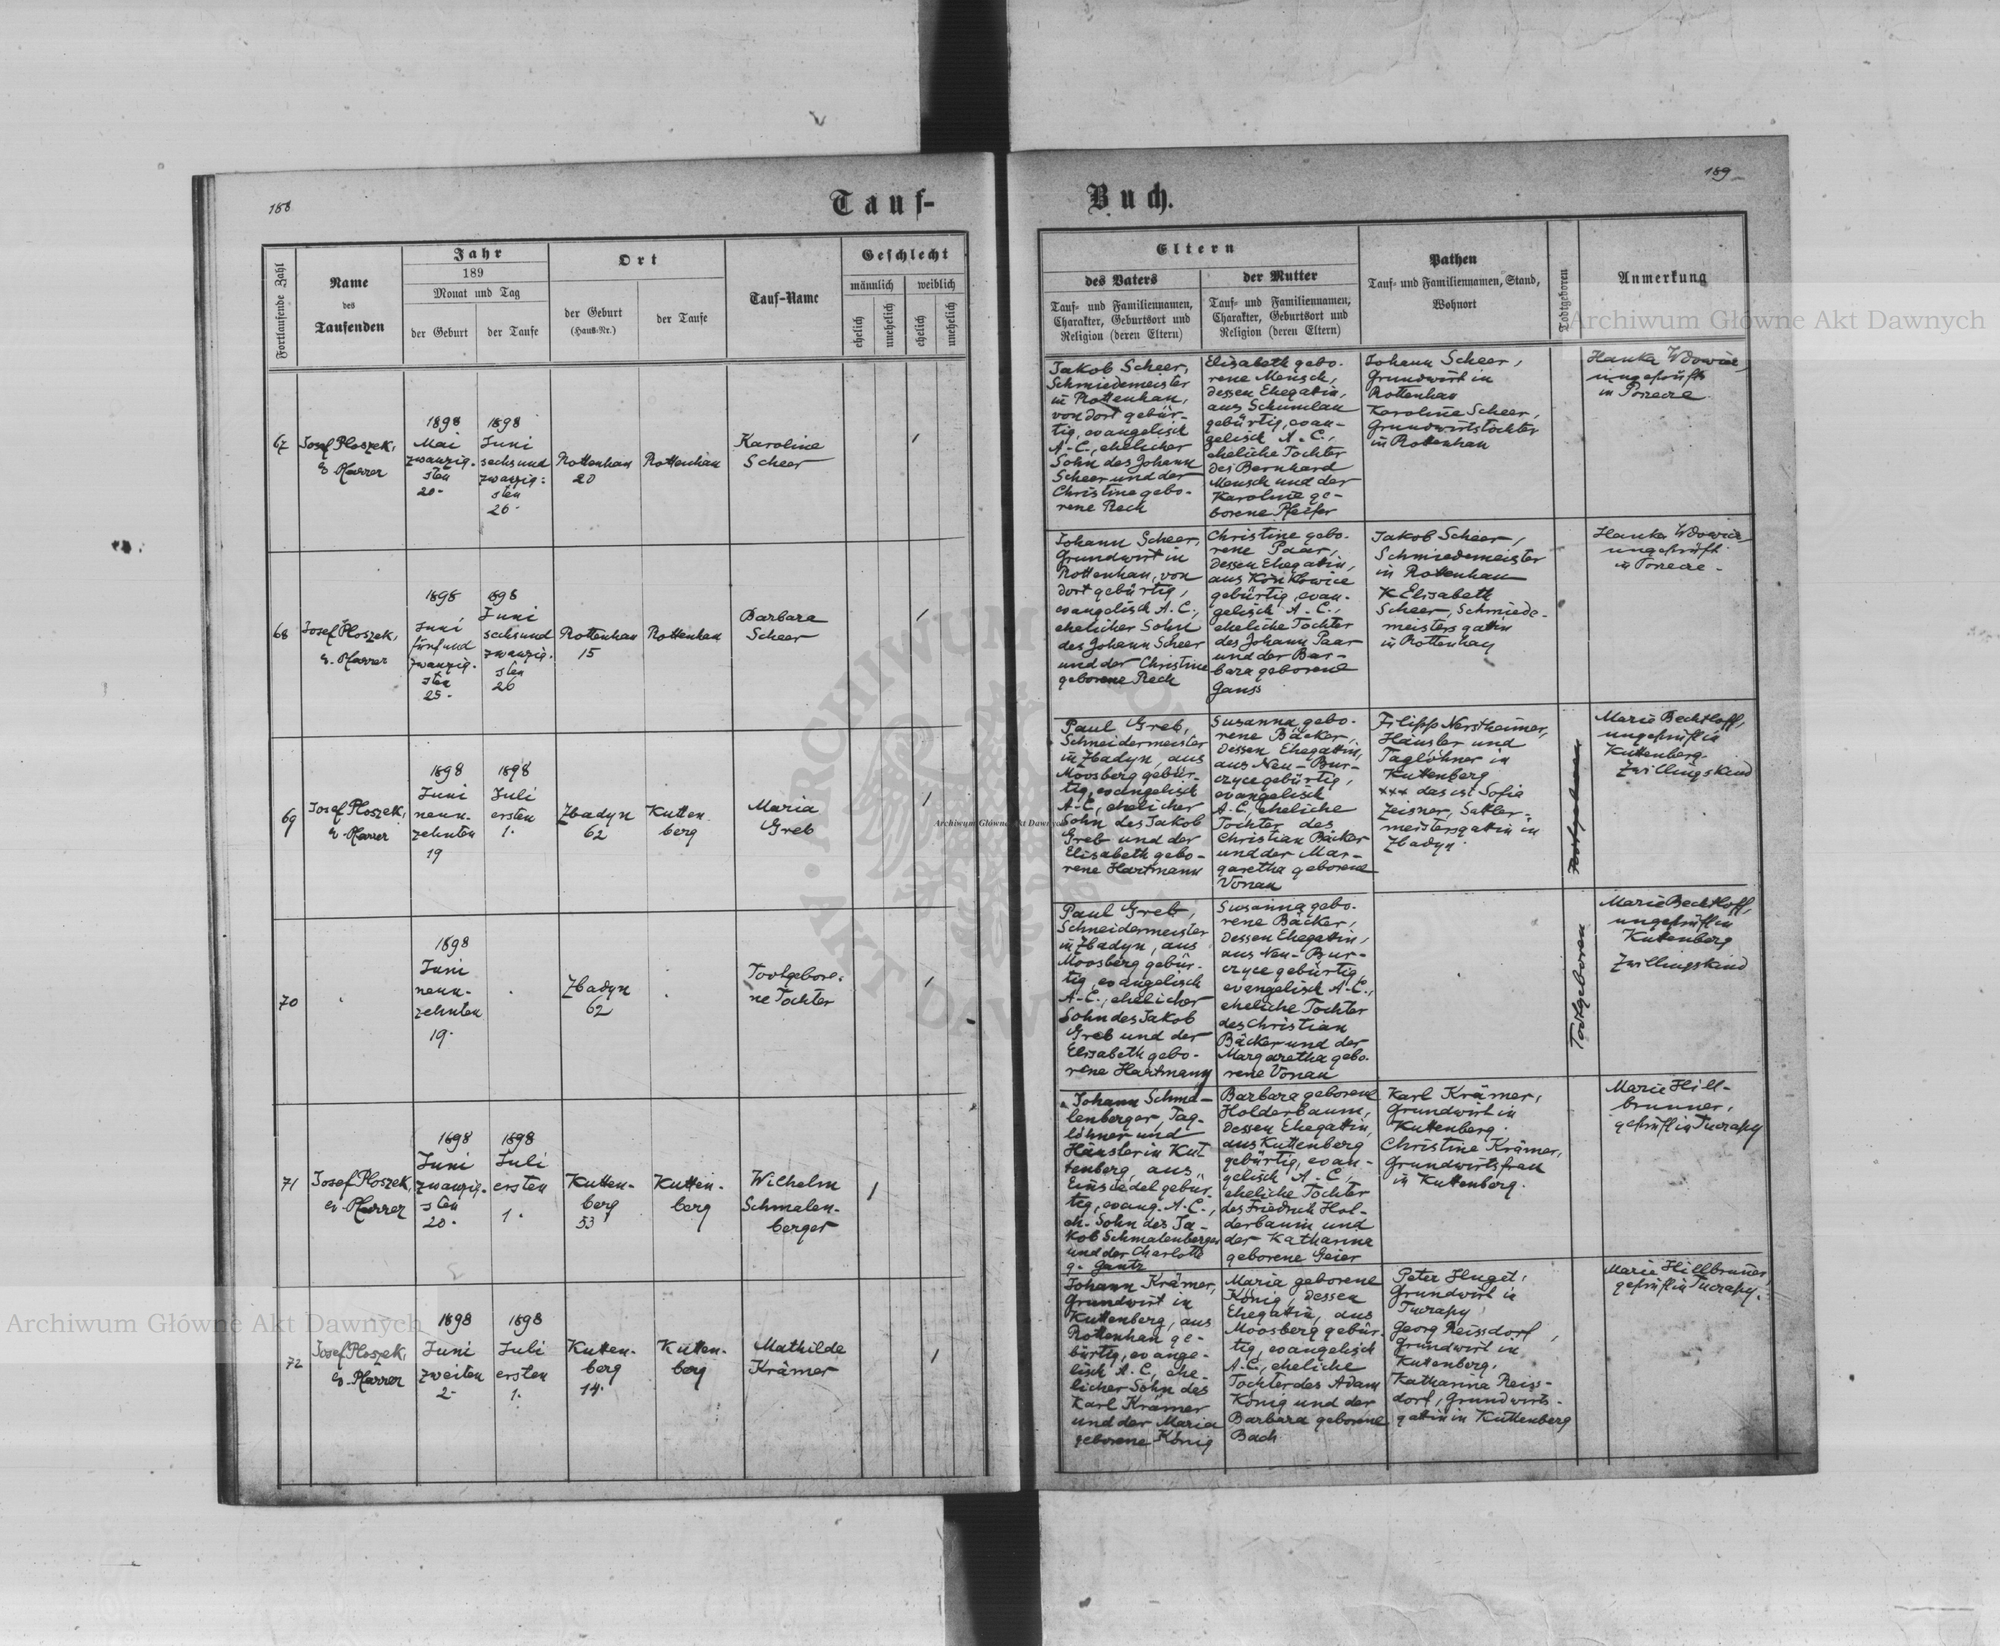 188
Tauf-
Fortlaufende Zahl
Name
des
Taufenden
Jahr
189
Monat und Tag
der Geburt
der Taufe
Ort
der Geburt
(Haus-Nr.)
der Taufe
Tauf-Name
Geschlecht
männlich
weiblich
ehelich
unehelich
ehelich
unehelich
67
Josef Ploszek,
ev. Pfarrer
1898
Mai
zwanzig-
sten
20.
1898
Juni
sechsund
zwanzig-
sten
26.
Rottenhan
20
Rottenhan
Karoline
Scheer
1
68
Josef Ploszek,
ev. Pfarrer
1898
Juni
fünfund
zwanzig-
sten
25.
1898
Juni
sechsund
zwanzig-
sten
26
Rottenhan
15
Rottenhan
Barbara
Scheer
1
69
Josef Ploszek,
ev. Pfarrer
1898
Juni
neun-
zehnten
19
1898
Juli
ersten
1.
Zbadyn
62
Kutten-
berg
Maria
Greb
1
70
1898
Juni
neun-
zehnten
19.
Zbadyn
62
Todtgebore-
ne Tochter
1
71
Josef Ploszek,
ev. Pfarrer
1898
Juni
zwanzig-
sten
20.
1898
Juli
ersten
1.
Kutten-
berg
53
Kutten-
berg
Wilhelm
Schmalen-
berger
1
72
Josef Ploszek,
ev. Pfarrer
1898
Juni
zweiten
2.
1898
Juli
ersten
1.
Kutten-
berg
14.
Kutten-
berg
Mathilde
Krämer
1
189
Buch.
Eltern
des Vaters
Tauf- und Familiennamen,
Charakter, Geburtsort und
Religion (deren Eltern)
der Mutter
Tauf- und Familiennamen,
Charakter, Geburtsort und
Religion (deren Eltern)
Pathen
Tauf- und Familiennamen, Stand,
Wohnort
Todtgeboren
Anmerkung
Jakob Scheer,
Schmiedemeister
in Rottenhan,
von dort gebür-
tig, evangelisch
A.C., ehelicher
Sohn des Johann
Scheer und der
Christine gebo-
rene Rech
Elisabeth gebo-
rene Mensch,
dessen Ehegatin,
aus Schumlau
gebürtig, evan-
gelisch A.C.,
eheliche Tochter
des Bernhard
Mensch und der
Karoline ge-
borene Pfeifer
Johann Scheer,
Grundwirt in
Rottenhan
Karoline Scheer,
Grundwirtstochter
in Rottenhan
Hanka Wdowicz,
ungeprüft
in Porzecze
Johann Scheer,
Grundwirt in
Rottenhan, von
dort gebürtig,
evangelisch A.C.,
ehelicher Sohn
des Johann Scheer
und der Christine
geborene Rech
Christine gebo-
rene Paar,
dessen Ehegatin,
aus
gebürtig, evan-
gelisch A.C.,
eheliche Tochter
des Johann Paar
und der Bar-
bara geborene
Gauss
Jakob Scheer,
Schmiedemeister
in Rottenhan
Elisabeth
Scheer, Schmiede-
meistersgattin
in Rottenhan
Hanka Wdowicz,
ungeprüft
in Porzecze
Paul Greb,
Schneidermeister
in Zbadyn, aus
Moosberg gebür-
tig, evangelisch
A.C., ehelicher
Sohn des Jakob
Greb und der
Elisabeth gebo-
rene Hartmann
Susanna gebo-
rene Bäcker,
dessen Ehegattin,
aus Neu-Bur-
czyce gebürtig,
evangelisch
A.C., eheliche
Tochter des
Christian Bäcker
und der Mar-
garetha geborene
Vonau
Filipp Nerstheimer,
Häusler und
Taglöhner in
Kuttenberg
xxx das ist Sofia
Zeisner, Sattler-
meistersgattin in
Zbadyn
Marie Bechtloff,
ungeprüft in
Kuttenberg
Zwillingskind
Paul Greb,
Schneidermeister
in Zbadyn, aus
Moosberg gebür-
tig, evangelisch
A.C., ehelicher
Sohn des Jakob
Greb und der
Elisabeth gebo-
rene Hartmann
Susanna gebo-
rene Bäcker,
dessen Ehegattin,
aus Neu-Bur-
czyce gebürtig,
evangelisch A.C.,
eheliche Tochter
des Christian
Bäcker und der
Margaretha gebo-
rene Vonau
Todtgeboren
Marie Bechtloff,
ungeprüft in
Kuttenberg
Zwillingskind
Johann Schma-
lenberger, Tag-
löhner und
Häusler in Kut
tenberg, aus
Einsiedel gebür-
tig, evang. A.C.,
eh. Sohn des Ja-
kob Schmalenberger
und der Charlotte
g. Gantz
Barbara geborene
Holderbaum,
dessen Ehegattin,
aus Kuttenberg
gebürtig, evan-
gelisch A.C.,
eheliche Tochter
des Friedrich Hol-
derbaum und
der Katharina
geborene Geier
Karl Krämer,
Grundwirt in
Kuttenberg.
Christine Krämer,
Grundwirtsfrau
in Kuttenberg.
Marie Hill-
brunner,
geprüft in Tuczapy
Johann Krämer,
Grundwirt in
Kuttenberg, aus
Rottenhan ge-
bürtig, evange-
lisch A.C., ehe-
licher Sohn des
Karl Krämer
und der Maria
geborene König
Maria geborene
König, dessen
Ehegattin, aus
Moosberg gebür-
tig, evangelisch
A.C., eheliche
Tochter des Adam
König und der
Barbara geborene
Bach
Peter Huget,
Grundwirt in
Tuczapy
Georg Reissdorf,
Grundwirt in
Kuttenberg.
Katharina Reiss-
dorf, Grundwirts-
gattin in Kuttenberg
Marie Hillbrunner,
geprüft in Tuczapy.
Archiwum Główne Akt Dawnych
Archiwum Główne Akt Dawnych
Archiwum Główne Akt Dawnych
ARCHIWUM
AKT DAWNYCH